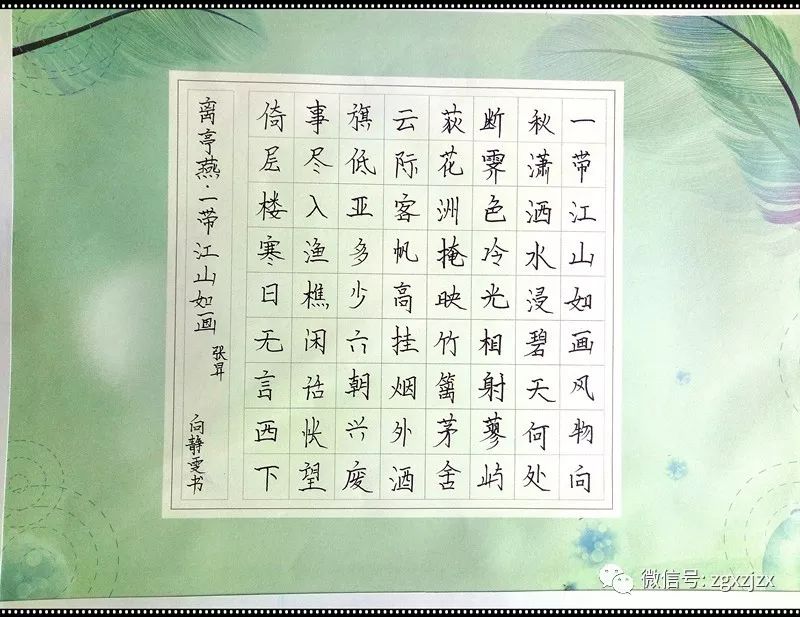 一带江山如画风物向
秋潇洒水浸碧天何处
断霁色冷光相射蓼屿
荻花洲掩映竹篱茅舍
云际客帆高挂烟外酒
旗低亚多少六朝兴废
事尽入渔樵闲话怅望
倚层楼寒日无言西下
离亭燕·一带江山如画
张昇
向静雯书
微信号: zgxzjzx